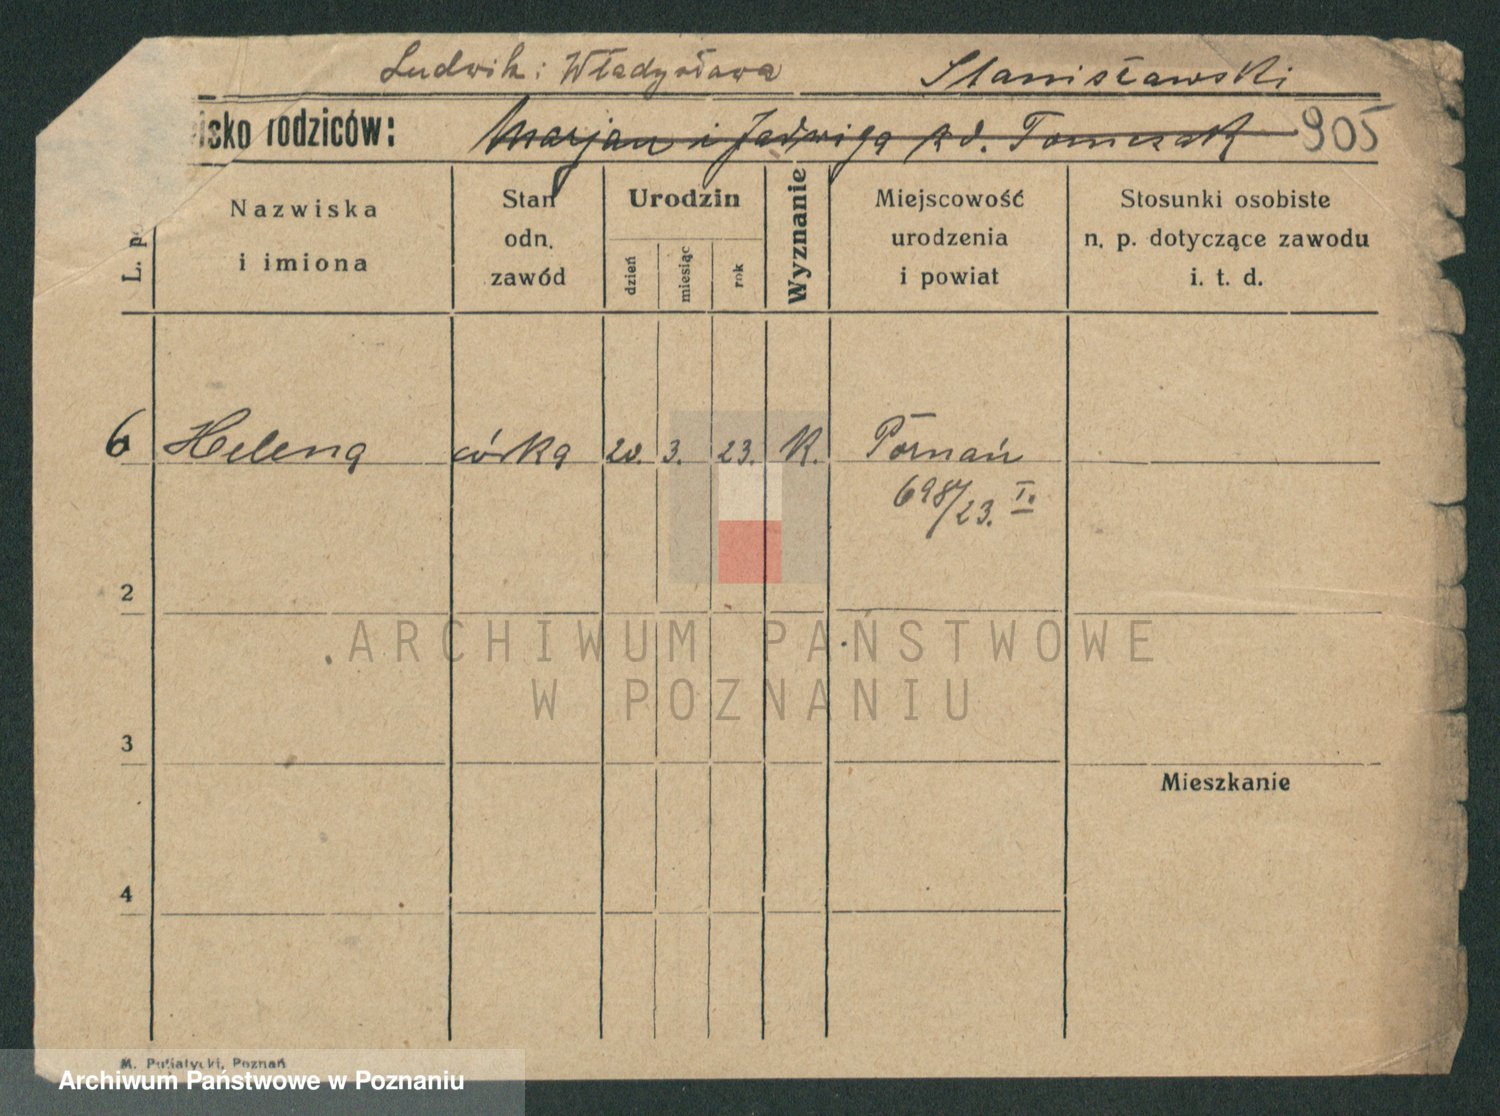 Ludwik i Władysława Stanisławski
isko rodziców: Marjan i Jadwiga zd. Tomczak 905
L. p
Nazwiska
i imiona
Stan
odn.
zawód
Urodzin
dzień
miesiąc
rok
Wyznanie
Miejscowość
urodzenia
i powiat
Stosunki osobiste
n. p. dotyczące zawodu
i. t. d.
6 Helena córka 20. 3. 23. K. Poznań
698/23. I.
2
ARCHIWUM PAŃSTWOWE
W POZNANIU
3
Mieszkanie
4
M. Putiatycki, Poznań
Archiwum Państwowe w Poznaniu